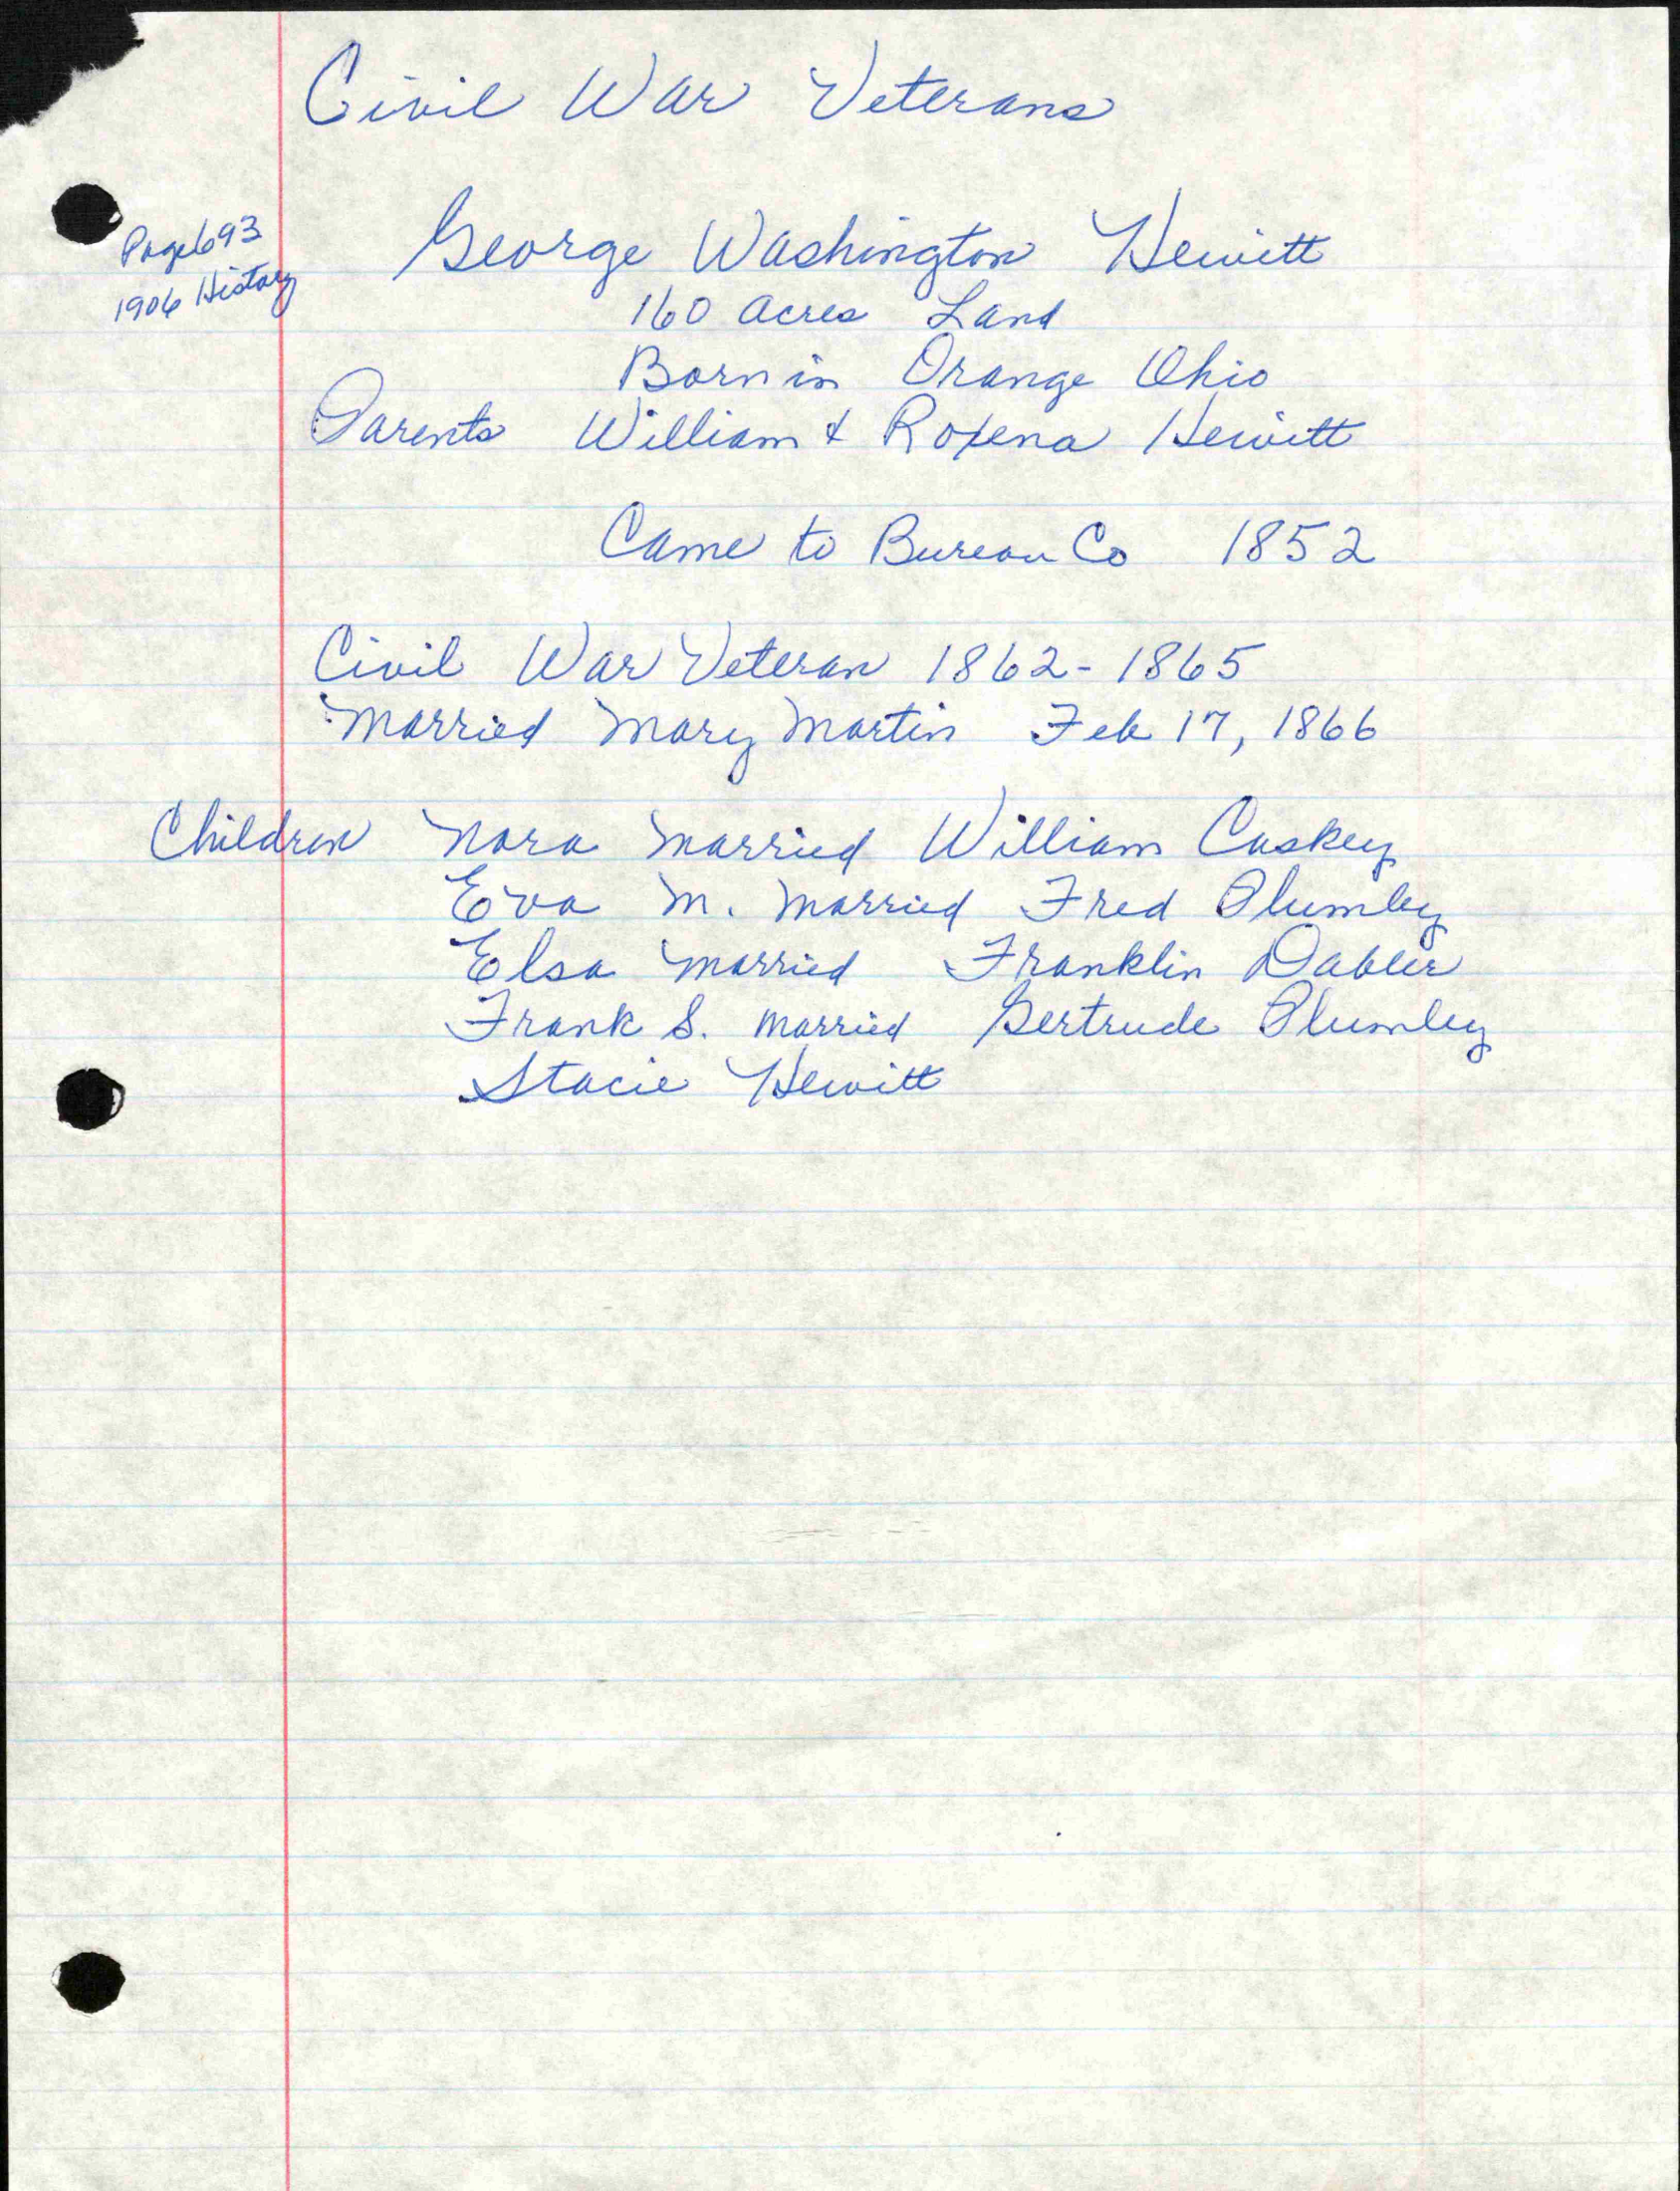 Civil War Veterans
Page 693
1906 History
George Washington Hewitt
160 acres Land
Born in Orange Ohio
Parents William & Roxena Hewitt
Came to Bureau Co 1852
Civil War Veteran 1862-1865
Married Mary Martin Feb 17, 1866
Children Nora married William Caskey
Eva M. married Fred Plumley
Elsa married Franklin Dabler
Frank S. married Gertrude Plumley
Stacie Hewitt